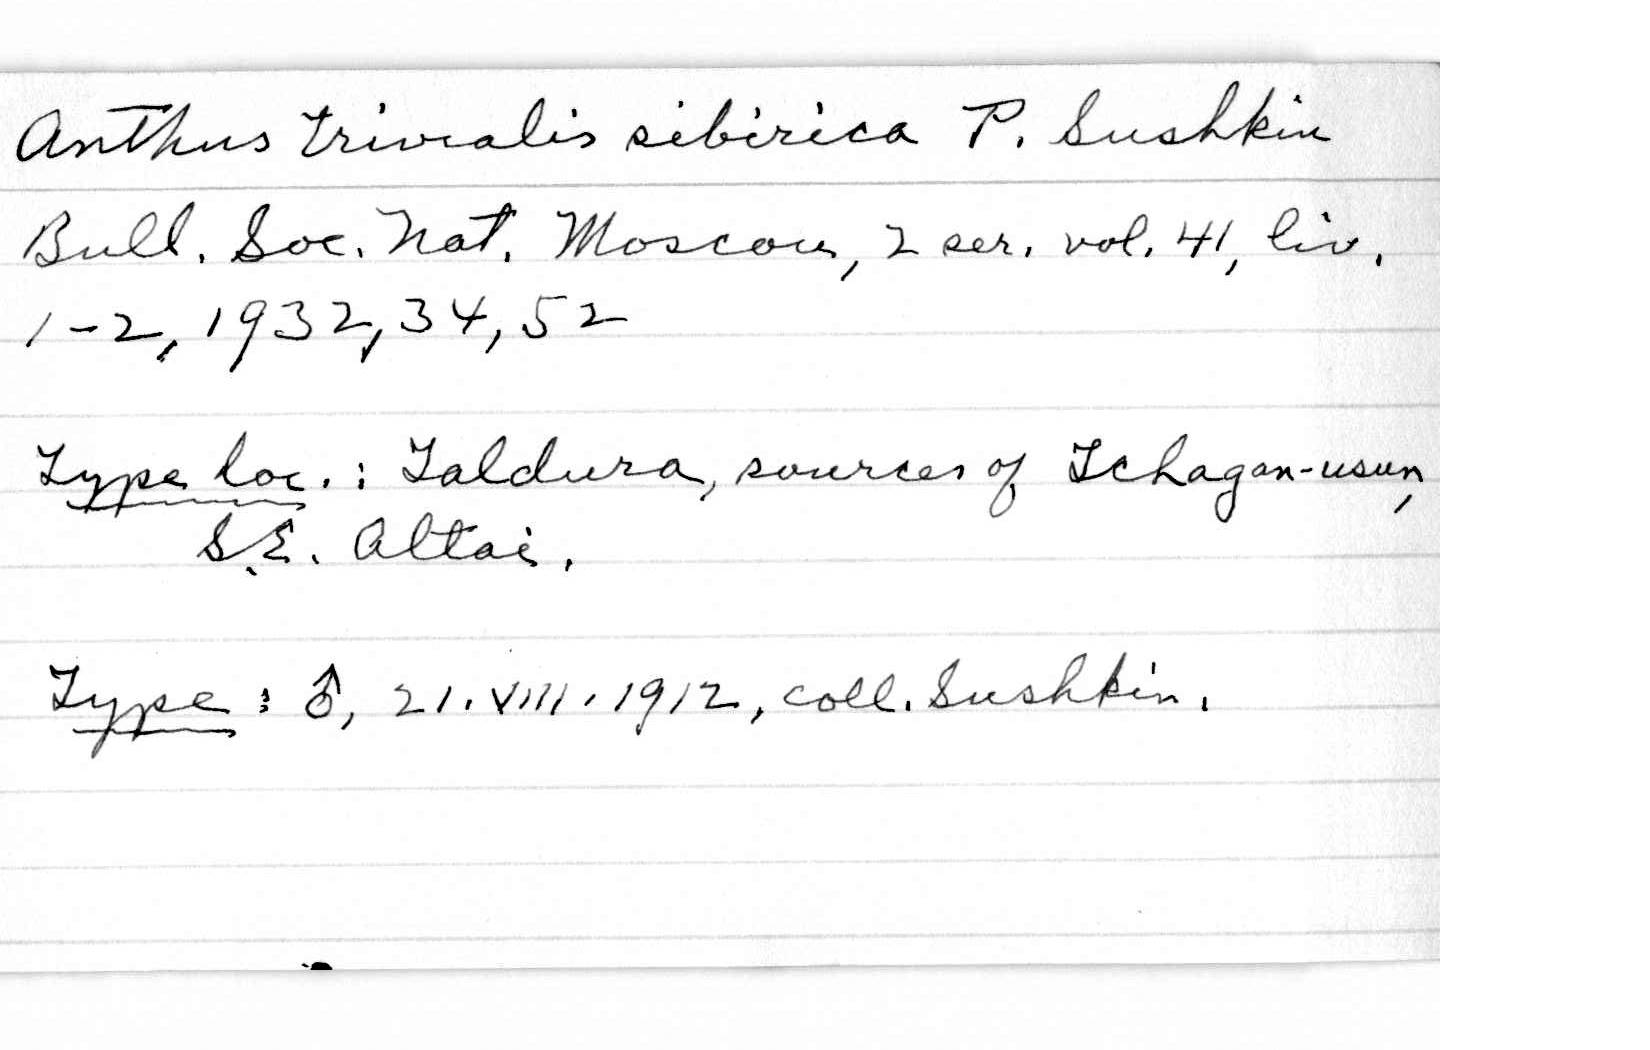 Anthus trivialis sibirica P. Sushkin
Bull. Soc. Nat. Moscou, 2 ser. vol. 41, liv.
1-2, 1932, 34, 52
Type loc. : Taldura, sources of Tchagan-usun,
S.E. Altai.
Type : ♂, 21.VIII.1912, coll. Sushkin.